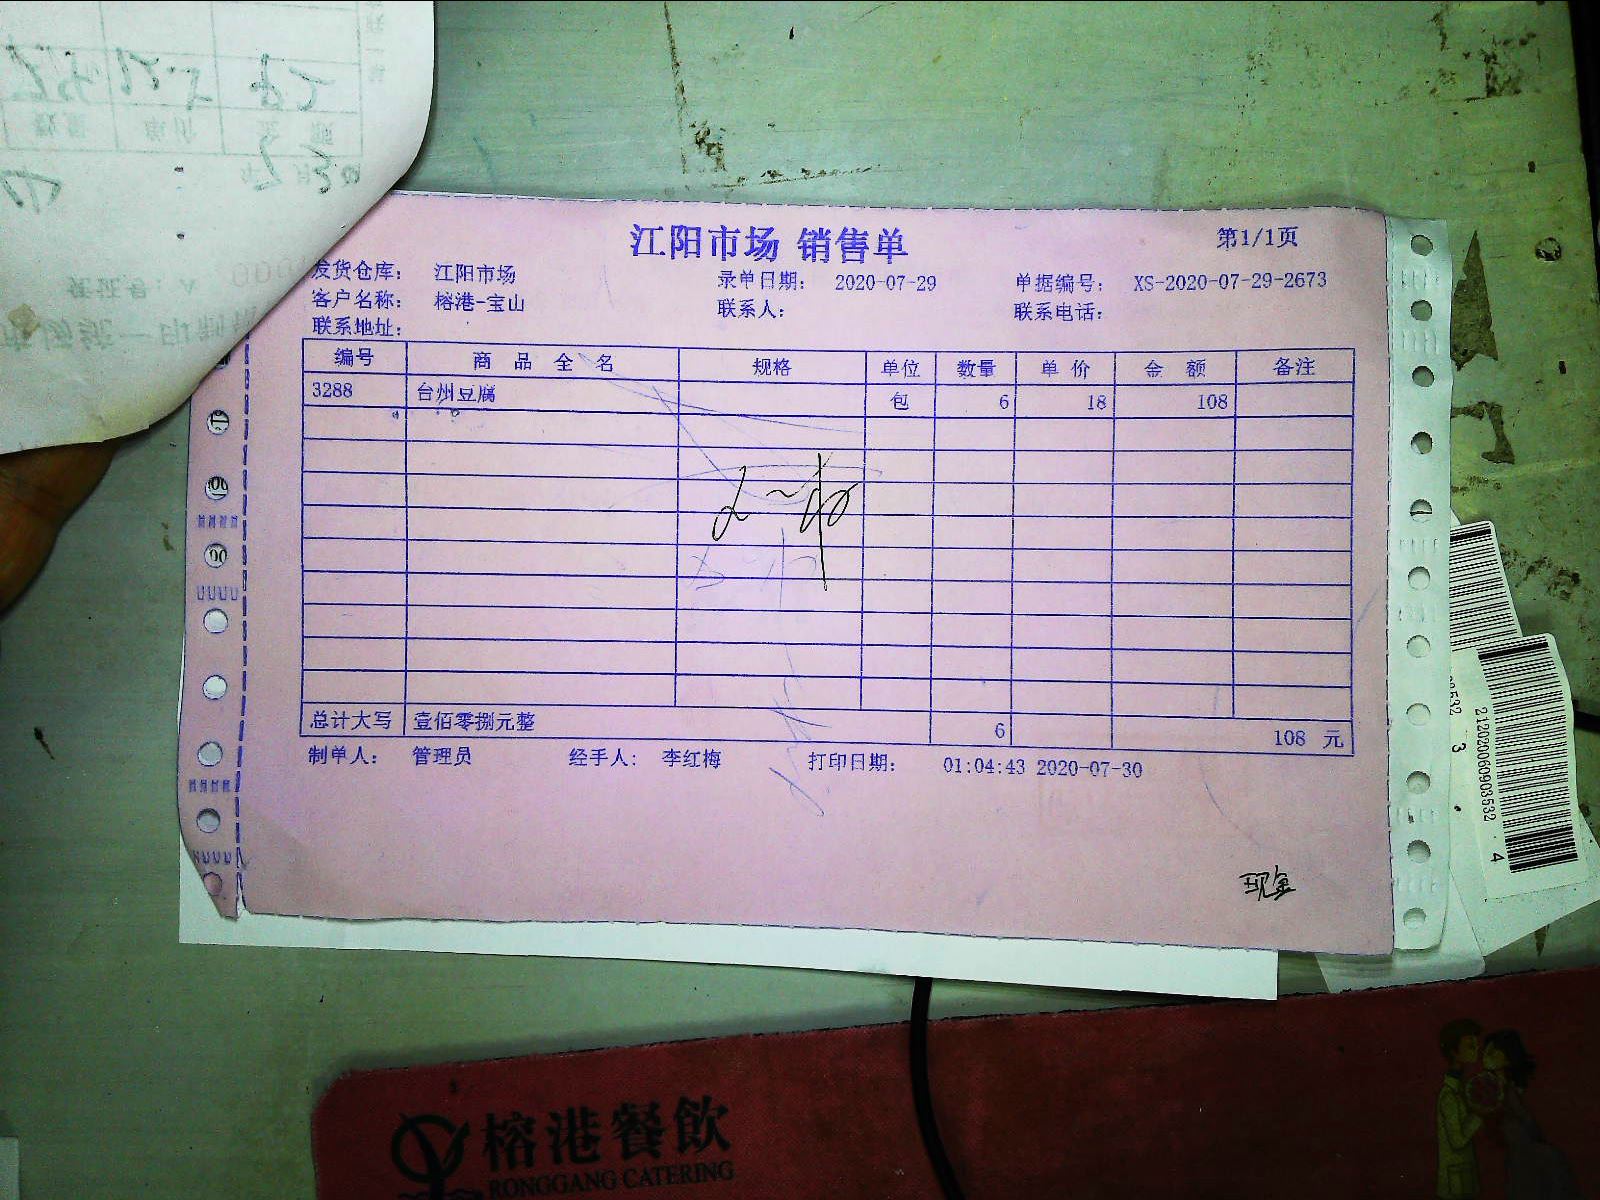 江阳市场 销售单
第1/1页
发货仓库： 江阳市场 录单日期： 2020-07-29 单据编号： XS-2020-07-29-2673
客户名称： 榕港-宝山 联系人： 联系电话：
联系地址：
编号 商品全名 规格 单位 数量 单价 金额 备注
3288 台州豆腐 包 6 18 108
总计大写 壹佰零捌元整 6 108 元
制单人： 管理员 经手人： 李红梅 打印日期： 01:04:43 2020-07-30
现金
2120206090353​2 4
榕港餐飲
RONGGANG CATERING